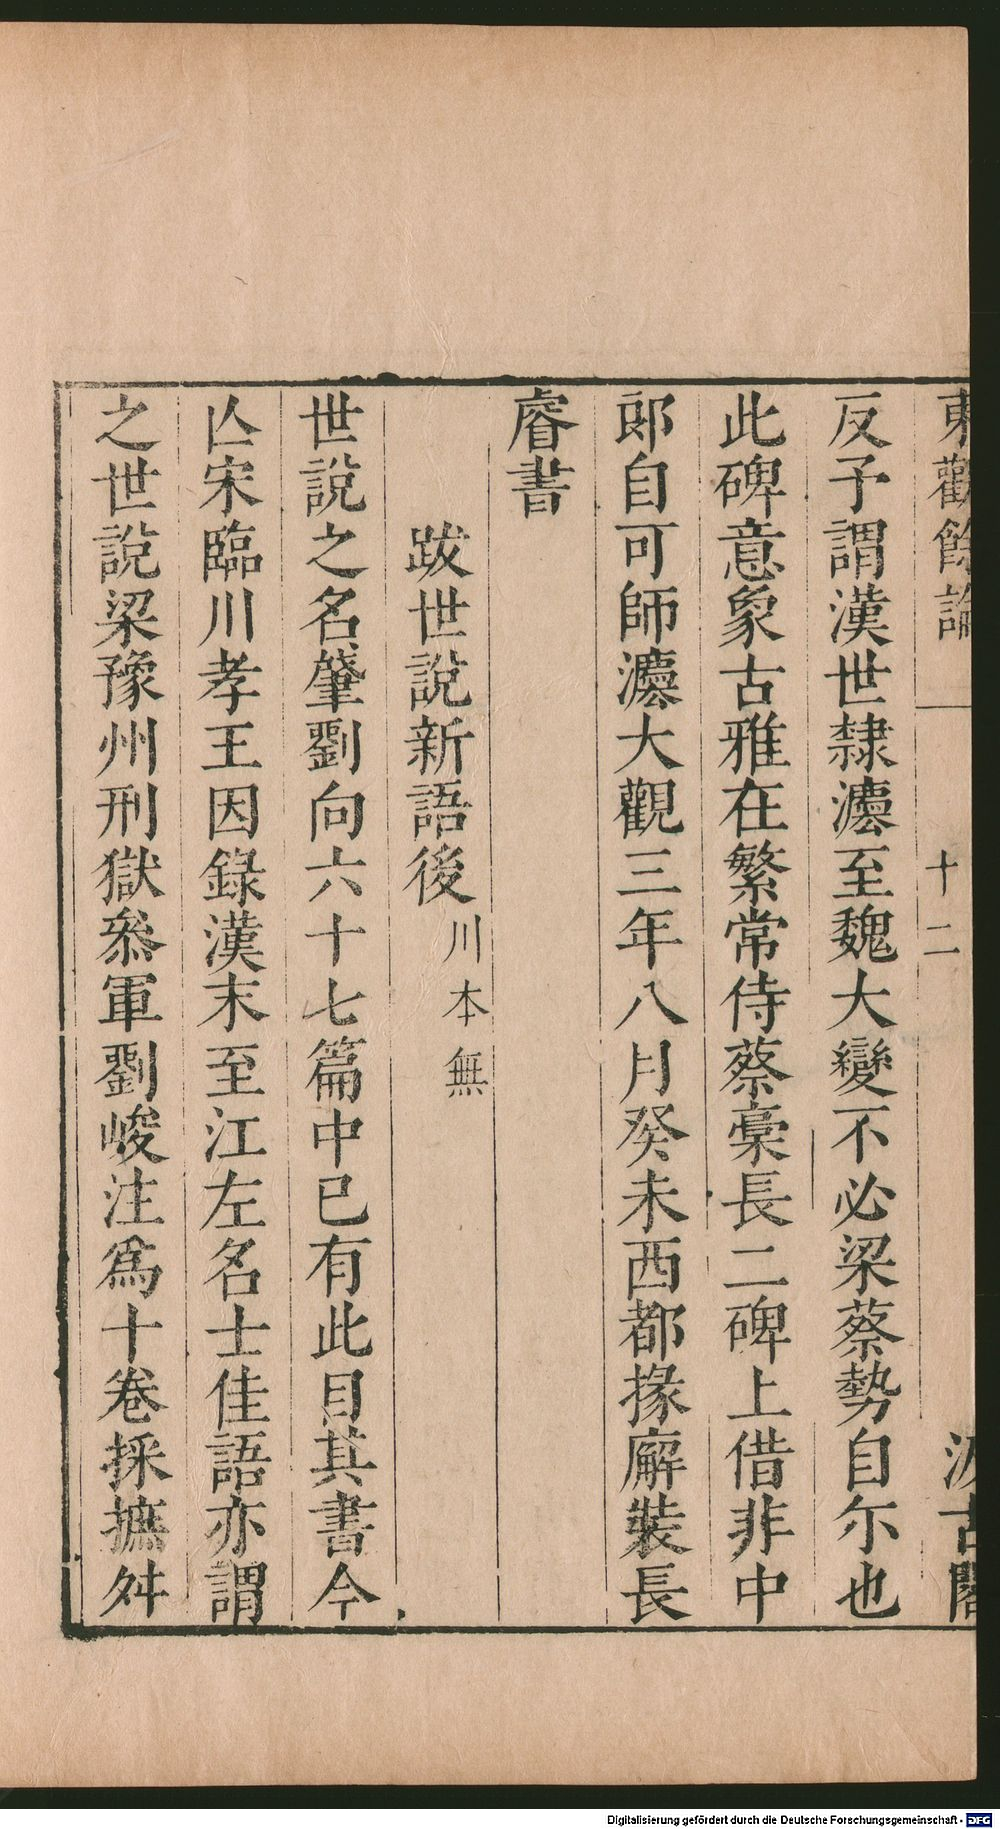 東觀餘論 十二 汲古閣
反予謂漢世隸灋至魏大變不必梁蔡勢自尒也
此碑意象古雅在繁常侍蔡稾長二碑上借非中
郎自可師灋大觀三年八月癸未西都掾廨裝長
睿書
跋世說新語後 川本無
世說之名肇劉向六十七篇中已有此目其書今
亾宋臨川孝王因錄漢末至江左名士佳語亦謂
之世說梁豫州刑獄叅軍劉峻注爲十卷採摭舛
Digitalisierung gefördert durch die Deutsche Forschungsgemeinschaft - DFG